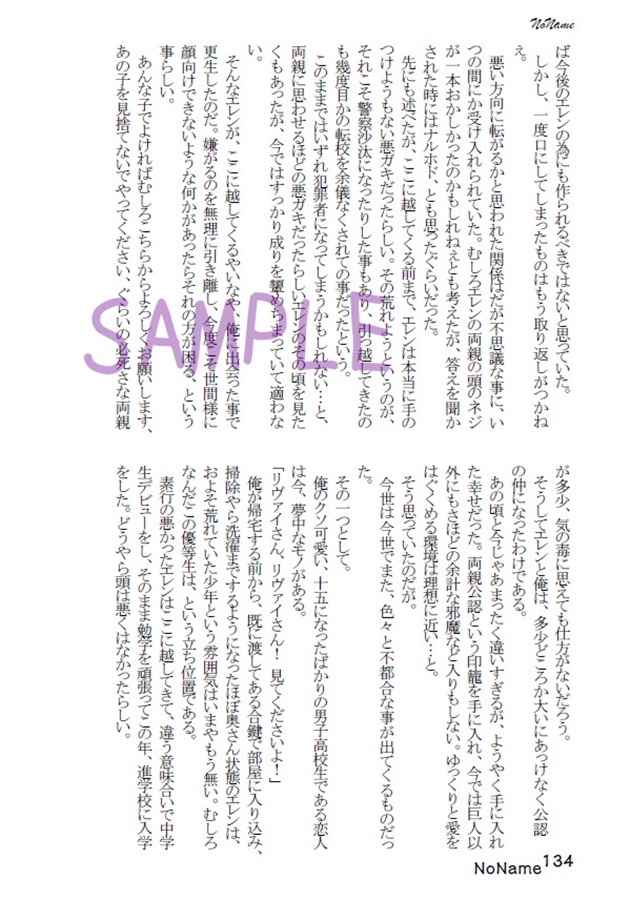 NoName
ば今後のエレンの為にも作られるべきではないと思っていた。
しかし、一度口にしてしまったものはもう取り返しがつかね
ぇ。
悪い方向に転がるかと思われた関係はだが不思議な事に、い
つの間にか受け入れられていた。むしろエレンの両親の頭のネジ
が一本おかしかったのかもしれねぇとも考えたが、答えを聞か
された時にはナルホド、とも思ったぐらいだった。
先にも述べたが、ここに越してくる前まで、エレンは本当に手の
つけようもない悪ガキだったらしい。その荒れようというのが、
それこそ警察沙汰になったりした事もあり、引っ越してきたの
も幾度目かの転校を余儀なくされての事だったという。
このままではいずれ犯罪者になってしまうかもしれない…と、
両親に思わせるほどの悪ガキだったらしいエレンのその頃を見た
くもあったが、今ではすっかり成りを顰めちまっていて適わな
い。
そんなエレンが、ここに越してくるやいなや、俺に出会った事で
更生したのだ。嫌がるのを無理に引き離し、今度こそ世間様に
顔向けできないような何かがあったらそれの方が困る、という
事らしい。
あんな子でよければむしろこちらからよろしくお願いします、
あの子を見捨てないでやってください、ぐらいの必死さな両親
が多少、気の毒に思えても仕方がないだろう。
そうしてエレンと俺は、多少どころか大いにあっけなく公認
の仲になったわけである。
あの頃と今じゃあまったく違いすぎるが、ようやく手に入れ
た幸せだった。両親公認という印籠を手に入れ、今では巨人以
外にもさほどの余計な邪魔など入りもしない。ゆっくりと愛を
はぐくめる環境は理想に近い…と。
そう思っていたのだが。
今世は今世でまた、色々と不都合な事が出てくるものだっ
た。
その一つとして。
俺のクソ可愛い、十五になったばかりの男子高校生である恋人
は今、夢中なモノがある。
「リヴァイさん、リヴァイさん！見てくださいよ！」
俺が帰宅する前から、既に渡してある合鍵で部屋に入り込み、
掃除やら洗濯までするようになったほぼ奥さん状態のエレンは、
およそ荒れていた少年という雰囲気はいまやもう無い。むしろ
なんだこの優等生は、という立ち位置である。
素行の悪かったエレンはここに越してきて、違う意味合いで中学
生デビューをし、そのまま勉学を頑張ってこの年、進学校に入学
をした。どうやら頭は悪くはなかったらしい。
SAMPLE
NoName134